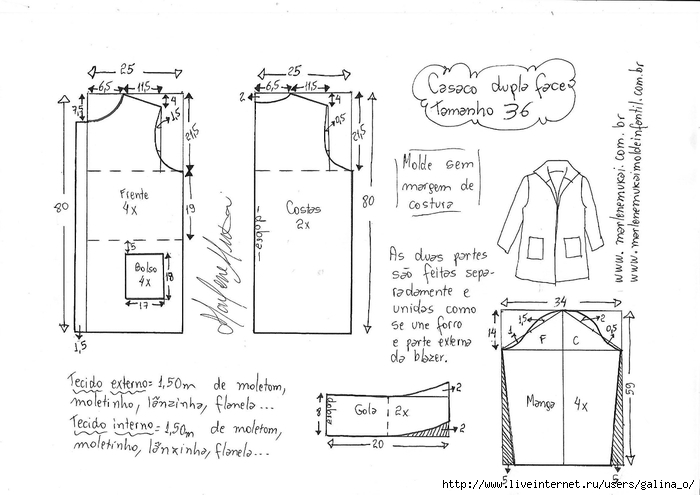 25
6,5 11,5
7,5
4
1,5
21,5
80
Frente
4x
19
5
Bolso
4x
18
17
1,5
Marlene Mukai
25
6,5 11,5
2
4
0,5
21,5
80
Costas
2x
dobra
Casaco dupla face
Tamanho 36
Molde sem
margem de
costura
As duas partes
são feitas sepa-
radamente e
unidas como
se une forro
e parte externa
da blazer.
www.marlenemukai.com.br
www.marlenemukaimoldeinfantil.com.br
34
14
1 1,5 2 0,5
F C
59
Manga 4x
5 5
Tecido externo = 1,50m de moletom,
moletinho, lãnzinha, flanela...
Tecido interno = 1,50m de moletom,
moletinho, lãnxinha, flanela...
dobra
8
Gola 2x
2
2
20
http://www.liveinternet.ru/users/galina_o/